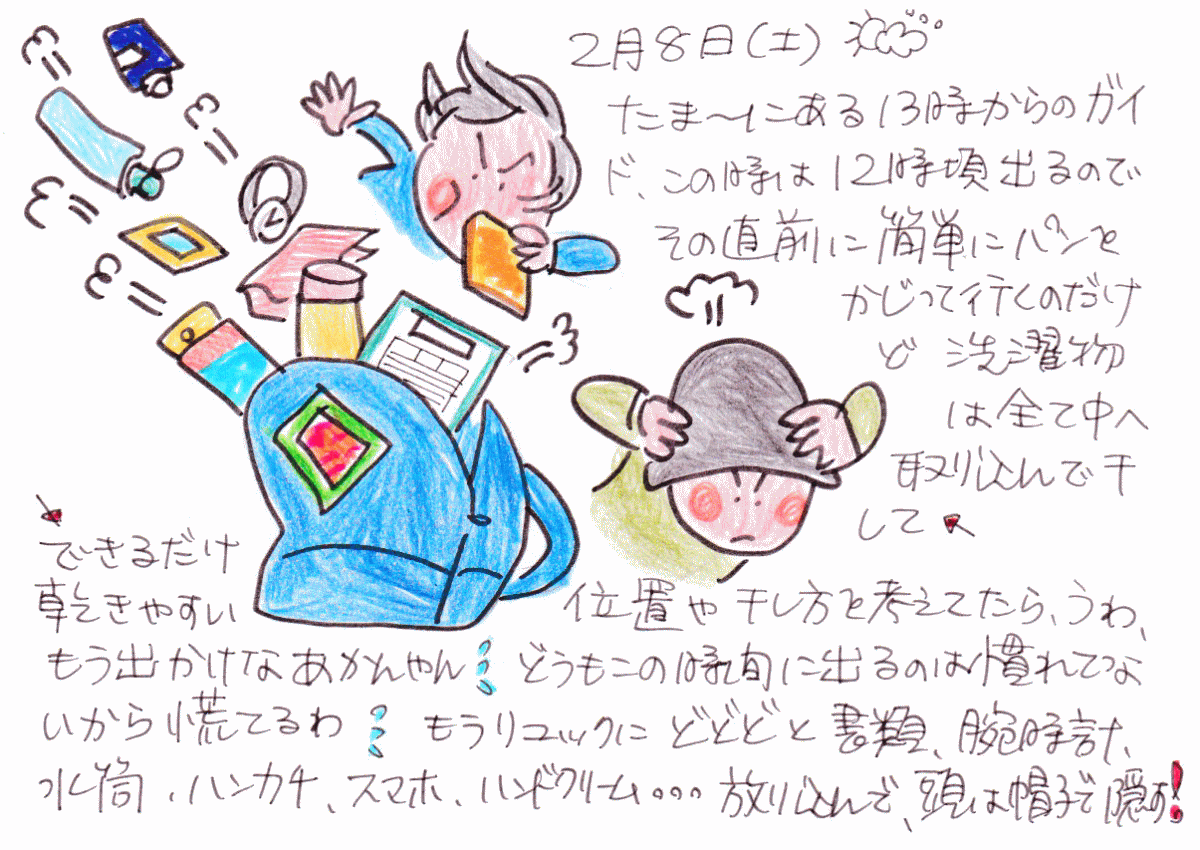 2月8日(土)
たま〜にある13時からのガイ
ド、この時は12時頃出るので
その直前に簡単にパンを
かじって行くのだけ
ど 洗濯物
は全て中へ
取り込んで干
して
できるだけ
乾きやすい 位置や干し方を考えてたら、うわ、
もう出かけなあかんやん どうもこの時間に出るのは慣れてな
いから慌てるわ もうリュックにどどどと書類、腕時計、
水筒、ハンカチ、スマホ、ハンドクリーム... 放り込んで、頭は帽子で隠す!